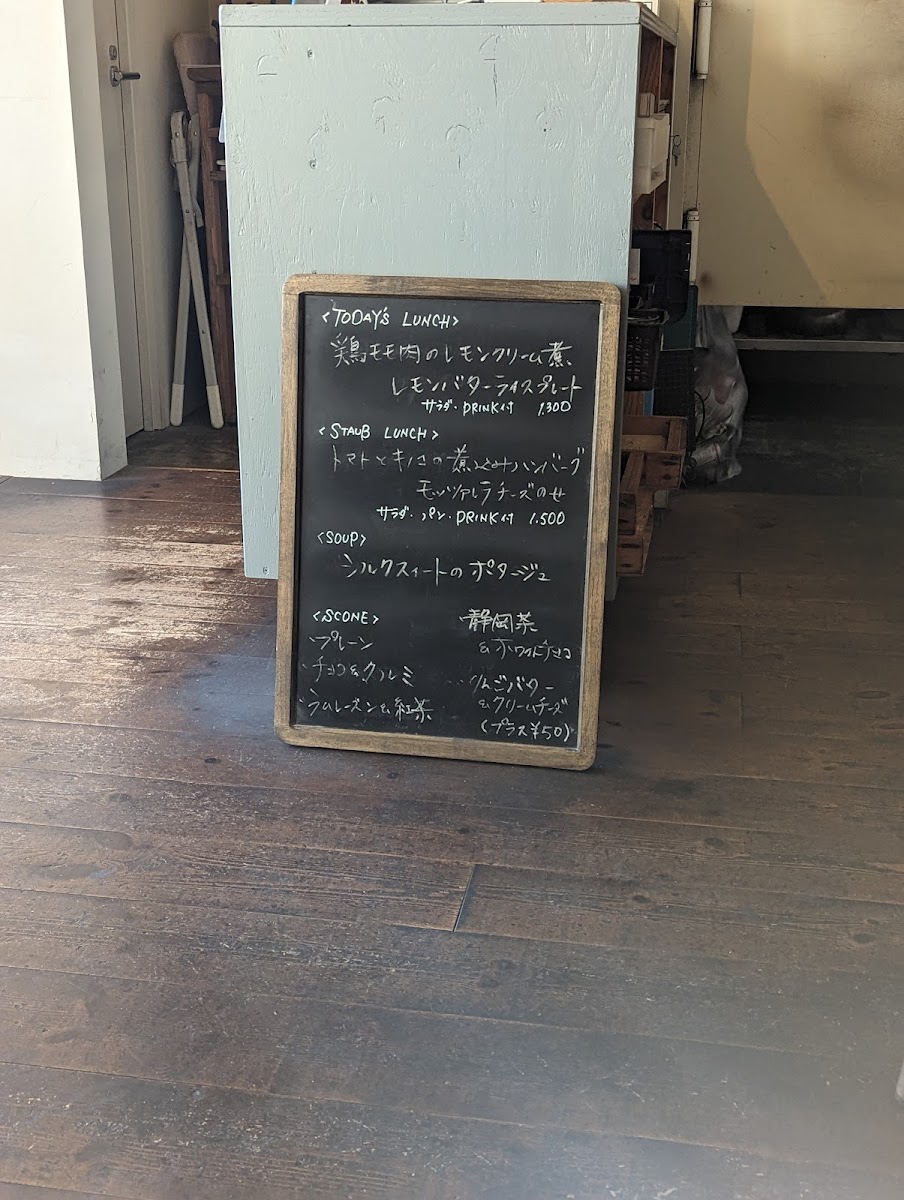 <TODAY'S LUNCH>
鶏モモ肉のレモンクリーム煮
レモンバターライスプレート
サラダ・DRINK付 1,300
<STAUB LUNCH>
トマトとキノコの煮込みハンバーグ
モッツァレラチーズのせ
サラダ・パン・DRINK付 1,500
<SOUP>
シルクスィートのポタージュ
<SCONE>
・プレーン
・チョコ&クルミ
・ラムレーズン&紅茶
・静岡茶
&ホワイトチョコ
・りんごバター
&クリームチーズ
(プラス¥50)